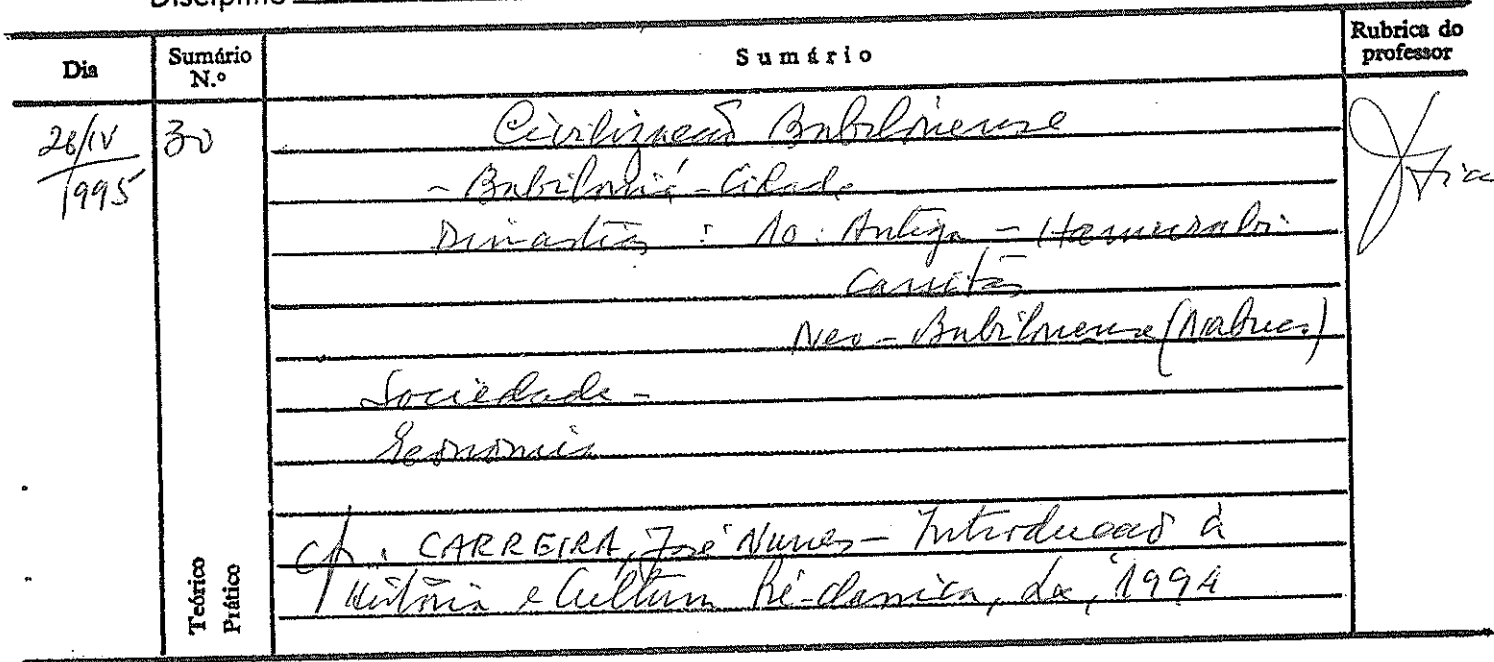 Disciplina
Dia
Sumário N.º
Sumário
Rubrica do professor
26/IV
1995
30
Civilização Babilónense
- Babilónia - Cidade
Dinastias : 1o : Antiga - Hamurabi
Cassitas
Neo - Babilónense (Nabuc.)
Sociedade -
Economia
Teórico
Prático
cf. : CARREIRA, José Nunes - Introdução à
História e Cultura Pré-clássica, Lx, 1994